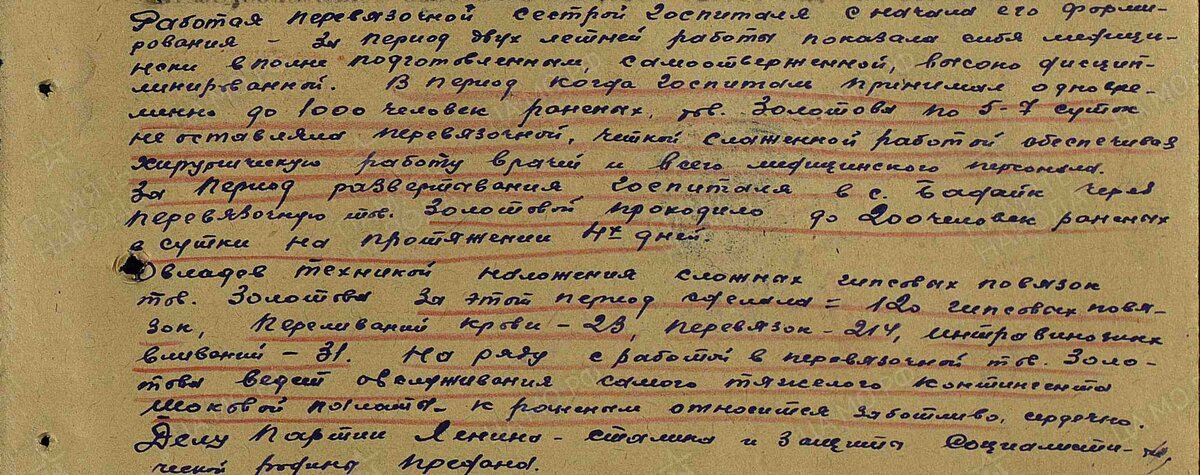 Работая перевязочной сестрой госпиталя с начала его форми-
рования – за период двух летней работы показала себя медици-
нски вполне подготовленным, самоотверженной, высоко дисцип-
линированной. В период когда госпиталь принимал одновре-
менно до 1000 человек раненых, тов. Золотова по 5-7 суток
не оставляла перевязочной, четкой слаженной работой обеспечивая
хирургическую работу врачей и всего медицинского персонала.
За период развертывания госпиталя в с. через
перевязочную тов. Золотовой проходило до 200 человек раненых
в сутки на протяжении 4х дней.
Овладев техникой наложения сложных гипсовых повязок
тов. Золотова за этот период сделала = 120 гипсовых повя-
зок, переливаний крови – 23, перевязок – 214, интравинозных
вливаний – 31. На ряду с работой в перевязочной тов. Золо-
това ведет обслуживания самого тяжелого контингента
шоковой палаты – к раненым относится заботливо, сердечно.
Делу партии Ленина – Сталина и защиты социалисти-
ческой родины предана.